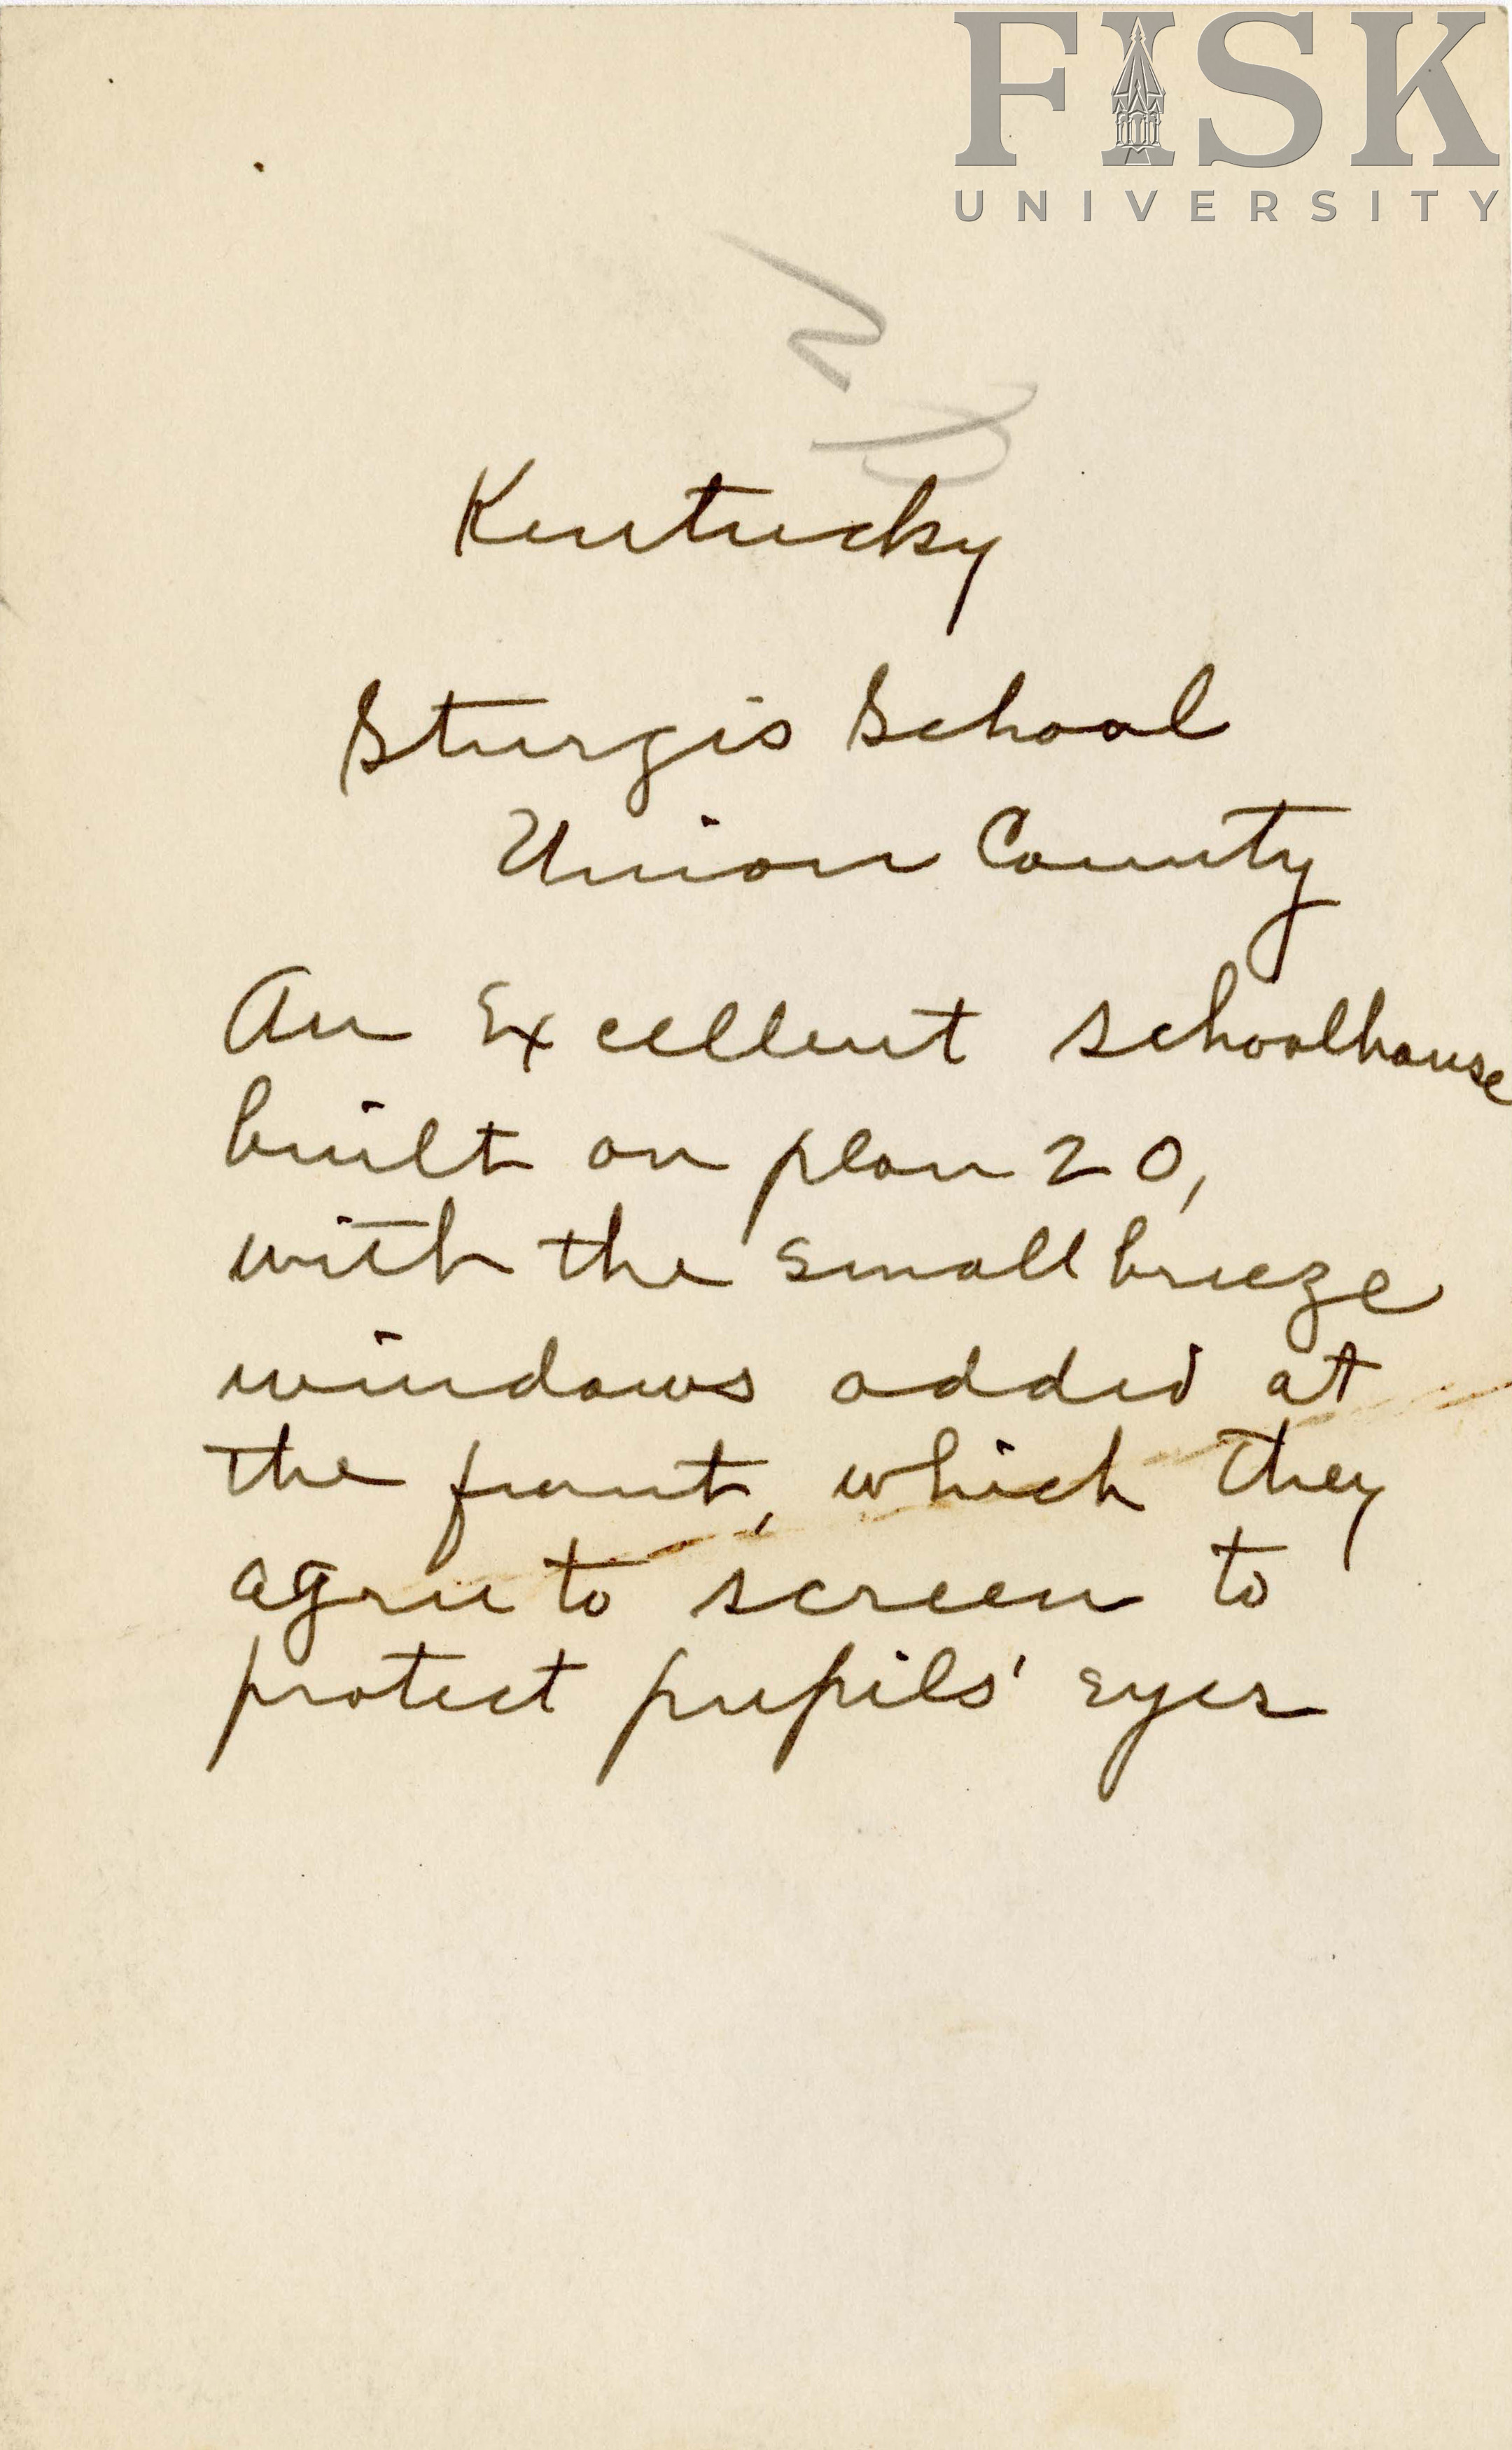 FISK
UNIVERSITY
Kentucky
Sturgis School
Union County
An Excellent schoolhouse
built on plan 20,
with the small breeze
windows added at
the front, which they
agree to screen to
protect pupils' eyes